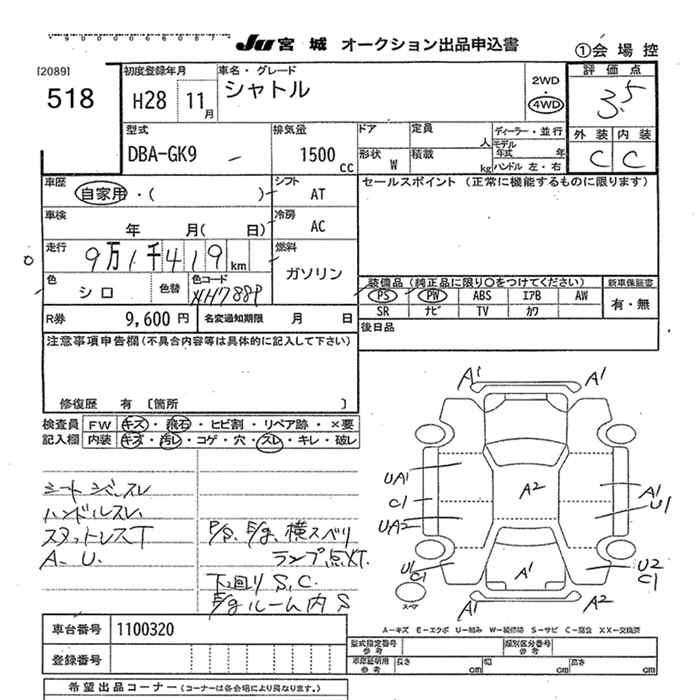 Ju 宮城 オークション出品申込書
①会場控
[2089]
518
初度登録年月
H28 11月
車名・グレード
シャトル
2WD
4WD
評価点
3.5
型式
DBA-GK9
排気量
1500cc
ドア
定員
人
ディーラー・並行
形状
W
積載
kg
モデル年式
年
ハンドル 左・右
外装
内装
C
C
車歴
自家用・( )
シフト
AT
セールスポイント (正常に機能するものに限ります)
車検
年 月( 日)
冷房
AC
走行
9万1千419km
燃料
ガソリン
色
シロ
色替
色コード
NH788P
装備品 (純正品に限り○をつけてください)
新車保証書
PS PW ABS エアB AW
有・無
SR ナビ TV カワ
R券
9,600円
名変通知期限
月 日
後日品
注意事項申告欄 (不具合内容等は具体的に記入して下さい)
修復歴 有 〔箇所 〕
検査員記入欄
FW キズ・飛石・ヒビ割・リペア跡・×要
内装 キズ・汚レ・コゲ・穴・スレ・キレ・破レ
ハンドルスレ
スタットレスT
A、U、
P/S、E/g、横スベリ
ランプ点XT.
下回りS、C、
E/gルーム内S
A1
A1
UA1
C1
UA2
A2
A1
U1
U1
C1
A1
U2
C1
A1
A2
スペア
A−キズ E−エクボ U−凹み W−補修跡 S−サビ C−腐食 XX−交換済
車台番号
1100320
登録番号
型式指定番号
参考
類別区分番号
参考
車庫証明用
参考
長さ
cm
幅
cm
高さ
cm
希望出品コーナー (コーナーは各会場により異なります。)